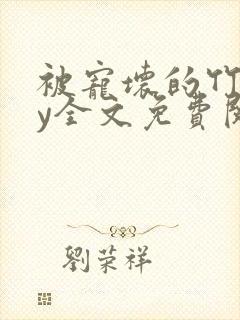 被寵壞的竹
y全文免費閱
劉荣祥